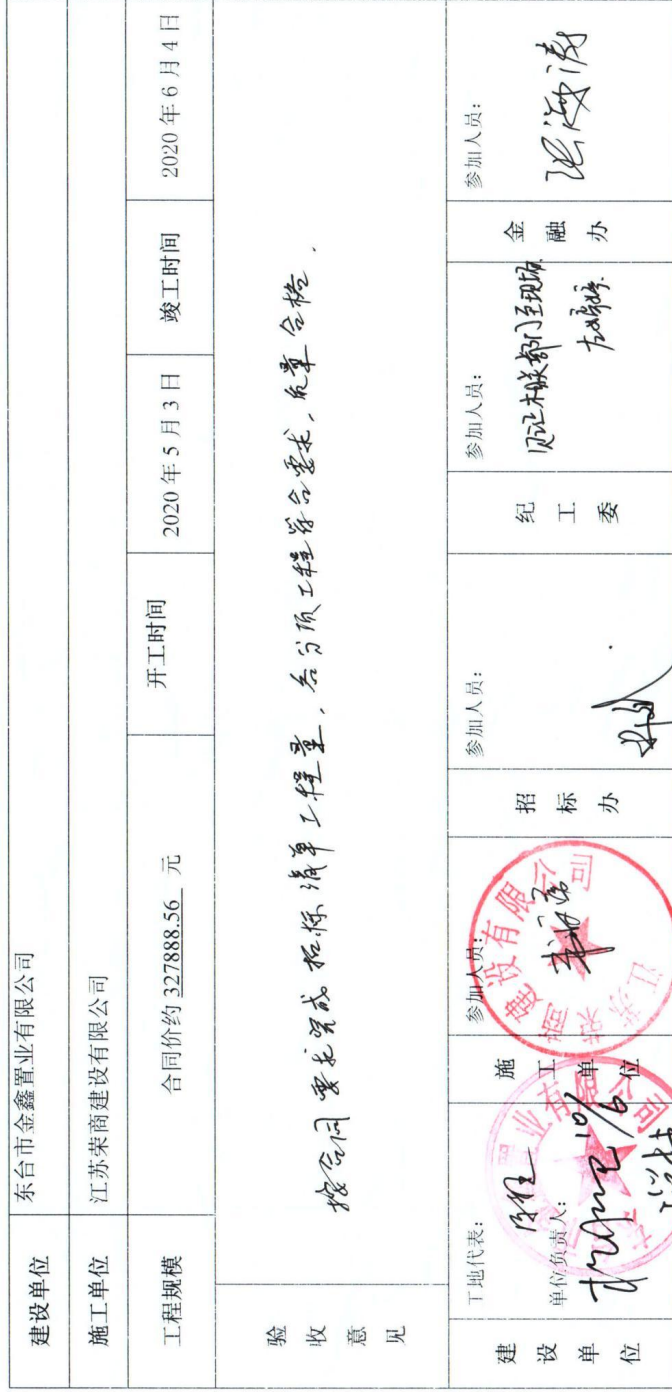 建设单位 东台市金鑫置业有限公司
施工单位 江苏荣商建设有限公司
工程规模 合同价约 327888.56 元 开工时间 2020年5月3日 竣工时间 2020年6月4日
验收意见
按合同要求完成招标清单工程量,各分项工程符合要求,质量合格.
建设单位
工地代表:
单位负责人:
10/6
施工单位
参加人员:
江苏荣商建设有限公司
招标办
参加人员:
纪工委
参加人员:
见证相关部门至现场.
金融办
参加人员: